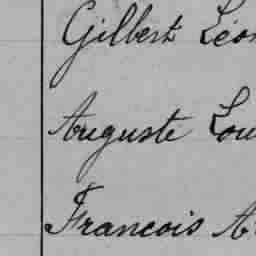 Gilbert Léon
Auguste Lou
Francois A